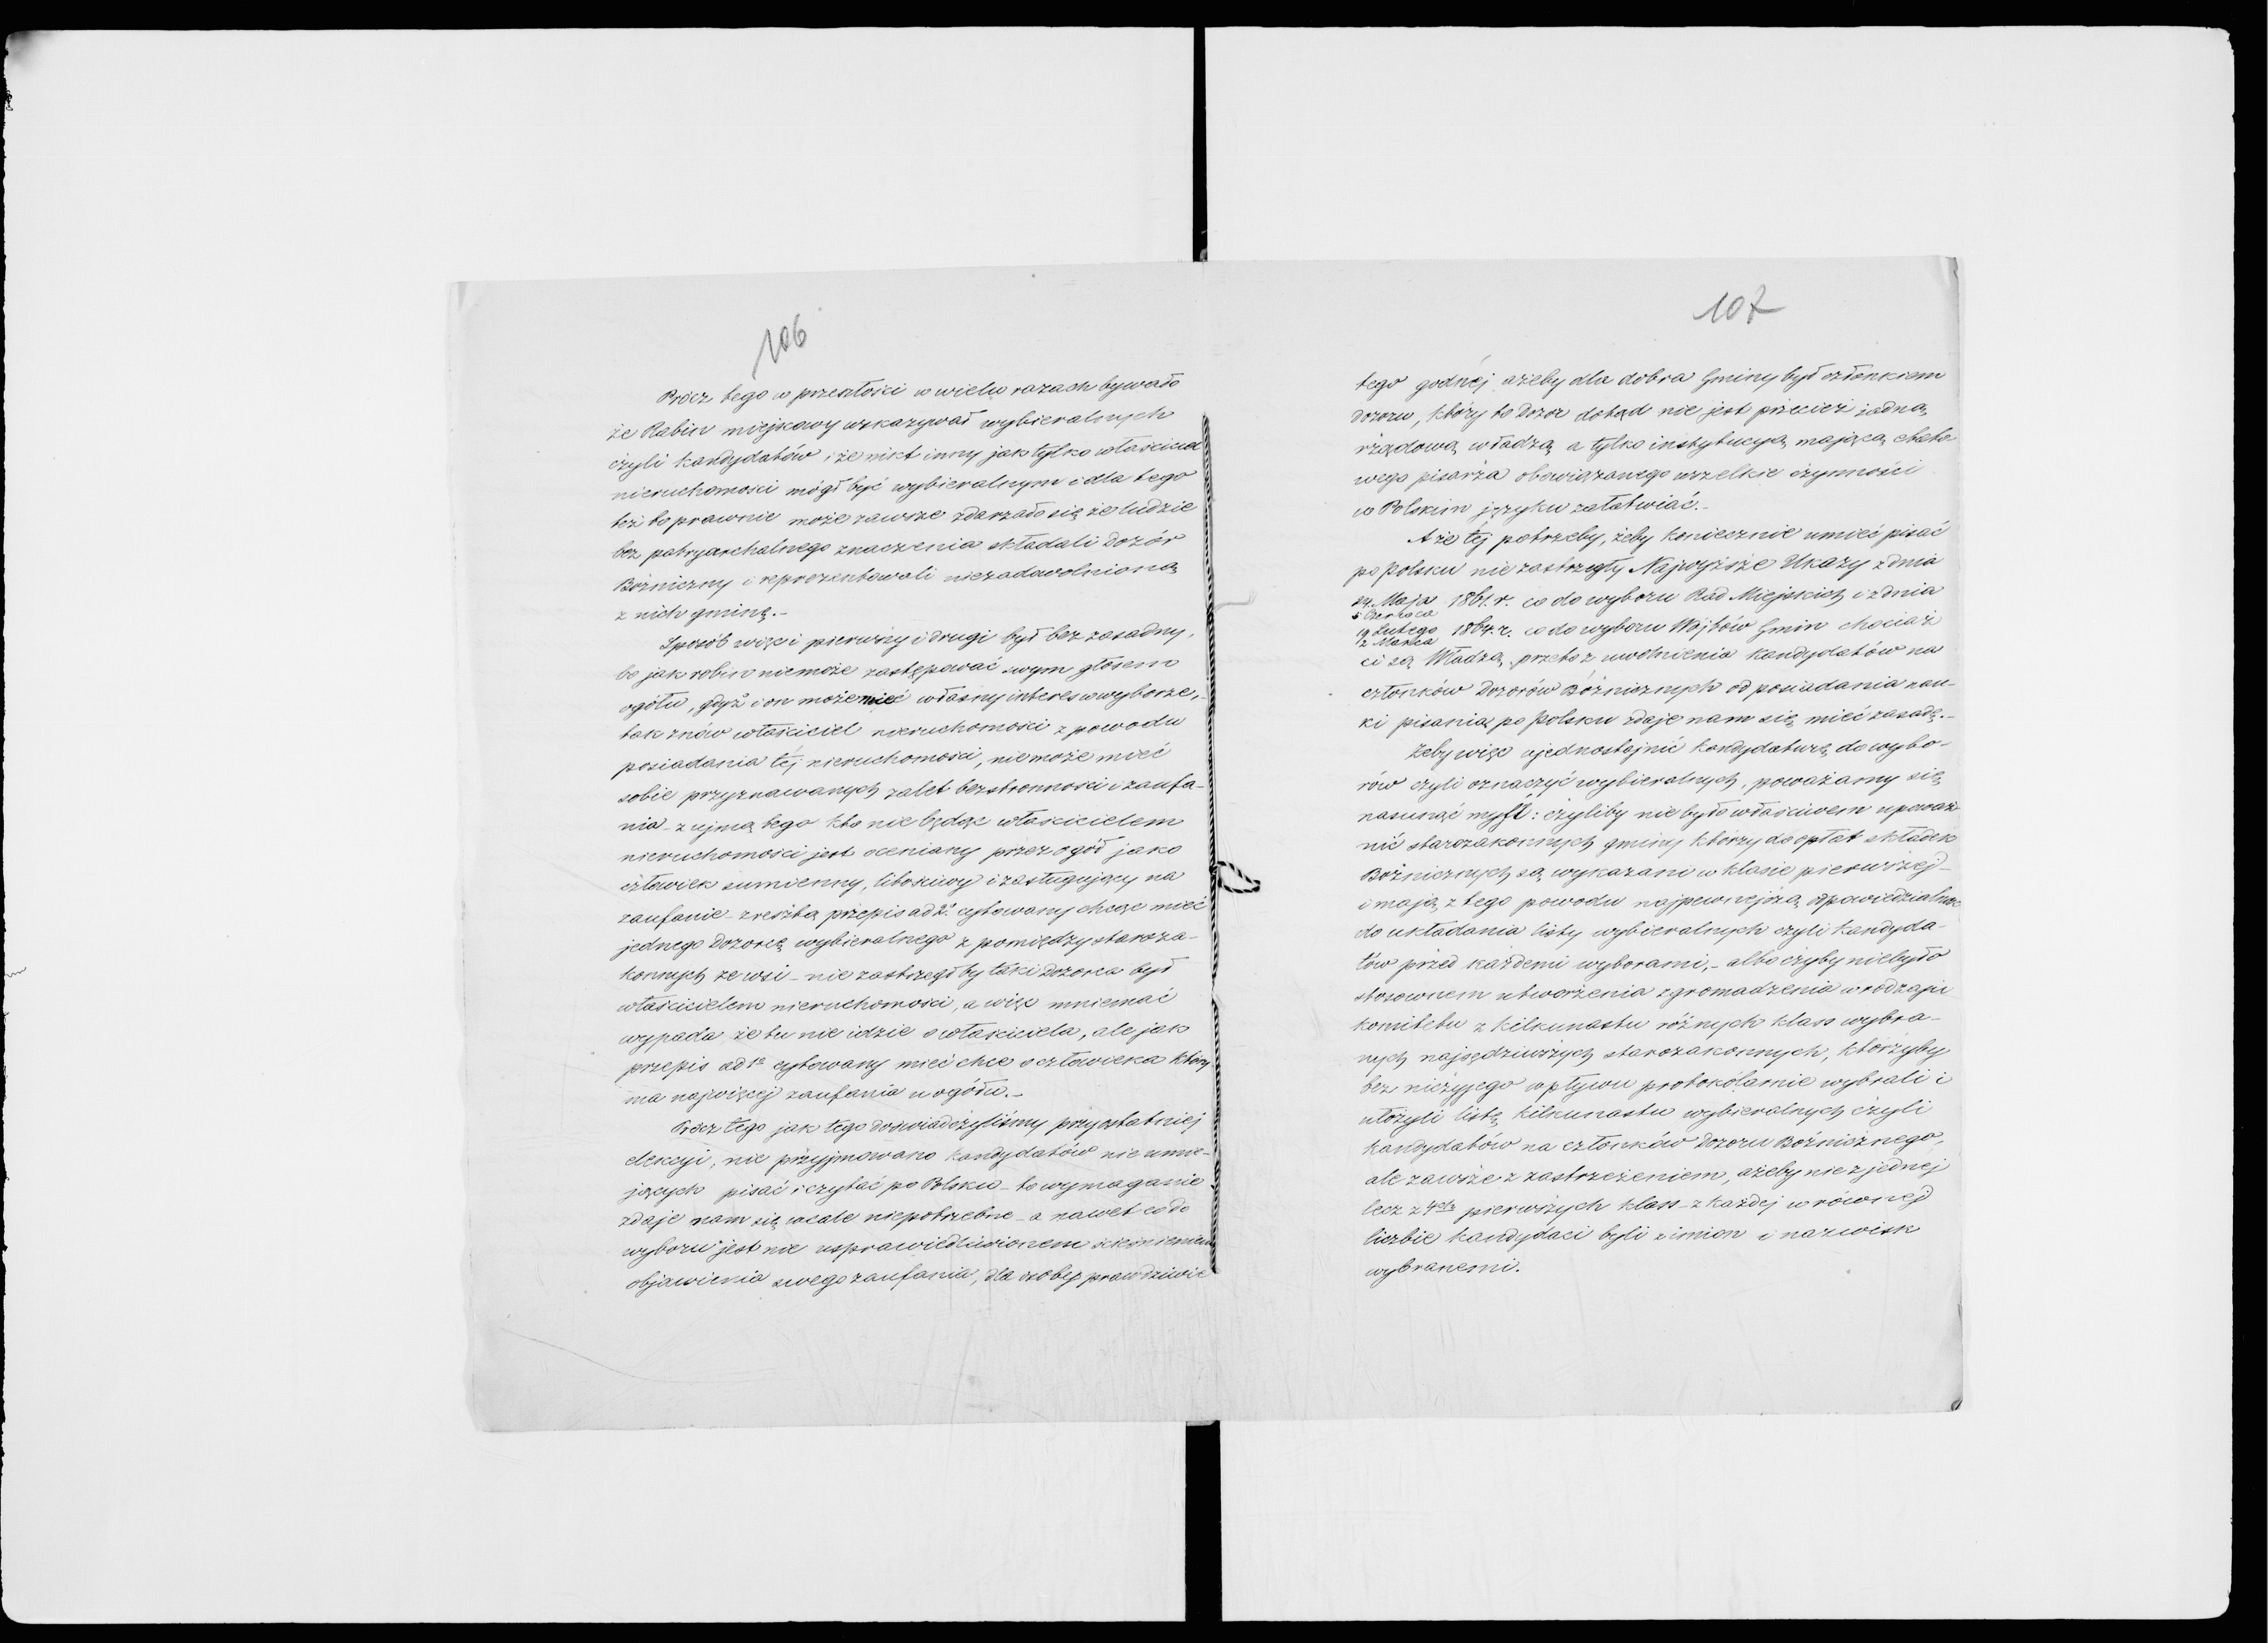 106
Prócz tego w przeszłości w wielu razach bywało
że Rabin miejscowy wskazywał wybieralnych
czyli kandydatów, i że nikt inny jak tylko właściciel
nieruchomości mógł być wybieralnym i dla tego
też to prawnie może zawsze zdarzało się że ludzie
bez patryarchalnego znaczenia składali Dozór
Bóżniczny i reprezentowali niezadowolnioną
z nich gminę.-
Sposób więc i pierwszy i drugi był bez zasadny,
bo jak rabin niemoże zastępować swym głosem
ogółu, gdyż i on może mieć własny interes w wyborze,-
tak znów właściciel nieruchomości z powodu
posiadania téj nieruchomości, nie może mieć
sobie przyznawanych zalet bezstronności i zaufa-
nia - z ujmą tego kto nie będąc właścicielem
nieruchomości jest oceniany przez ogół jako
człowiek sumienny, litościwy i zasługujący na
zaufanie - zresztą przepis ad 2º cytowany chcąc mieć
jednego Dozorcę wybieralnego z pomiędzy staroza-
konnych ze wsi - nie zastrzegł by taki Dozorca był
właścicielem nieruchomości, a więc mniemać
wypada, że tu nie idzie o właściciela, ale jak
przepis ad 1º cytowany mieć chce o człowieka który
ma najwięcej zaufania u ogółu.-
Prócz tego jak tego doświadczyliśmy przy ostatniej
elekcyi, nie przyjmowano kandydatów nie umie-
jących pisać i czytać po Polsku - to wymaganie
zdaje nam się wcale niepotrzebne - a nawet co do
wyboru jest nie usprawiedliwionem ścieśnieniem
objawienia swego zaufania, dla osoby prawdziwie
107
tego godnéj ażeby dla dobra Gminy był członkiem
Dozoru, który to Dozor dotąd nie jest przecież żadną
rządową władzą a tylko instytucyą mającą etato
wego pisarza obowiązanego wszelkie czynności
w Polskim języku załatwiać.-
A że téj potrzeby, żeby koniecznie umieć pisać
po Polsku nie zastrzegły Najwyższe Ukazy z dnia
24 Maja / 5 Czerwca 1861. r. co do wyboru Rad Miejskich i z dnia
19 Lutego / 2 Marca 1864. r. co do wyboru Wójtów Gmin chociaż
ci są Władzą, przeto z uwolnienia kandydatów na
członków Dozorów Bóżnicznych od posiadania nau-
ki pisania po Polsku zdaje nam się mieć zasadę.-
Żeby więc ujednostajnić kandydaturę do wybo-
rów czyli oznaczyć wybieralnych, poważamy się
nasunąć myśl: czyliby nie było właściwem upoważ-
nić starozakonnych gminy którzy do opłat składek
Bóżnicznych są wykazani w klasie pierwszej -
i mają z tego powodu najpewniejszą odpowiedzialność
do układania listy wybieralnych czyli kandyda-
tów przed każdemi wyborami,- albo czyby niebyło
stosownem utworzenia zgromadzenia w rodzaju
komitetu z kilkunastu różnych klass wybra-
nych najsędziwszych starozakonnych, którzyby
bez niczyjego wpływu protokólarnie wybrali i
ułożyli listę kilkunastu wybieralnych czyli
kandydatów na członków Dozoru Bóżnicznego,
ale zawsze z zastrzeżeniem, ażeby nie z jednej
lecz z 4ech pierwszych klass - z każdej w równej
liczbie kandydaci byli z imion i nazwisk
wybranemi.